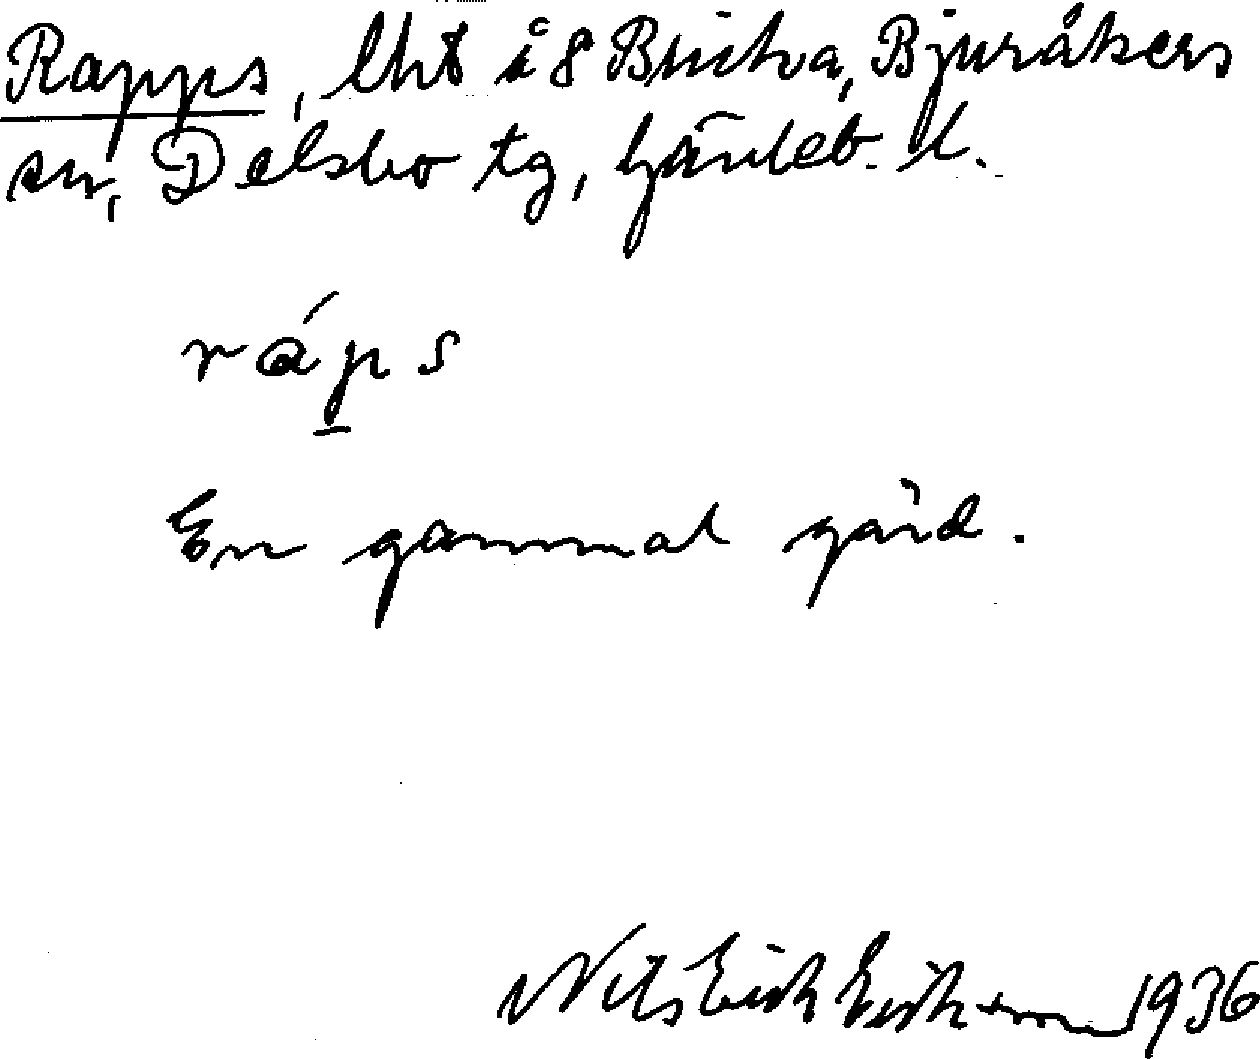 Rapps, lht i 8 Bricka, Bjuråkers
sn, Delsbo tg, Gävleb. l.
ráps
En gammal gård.
Nils Erik Eriksson 1936